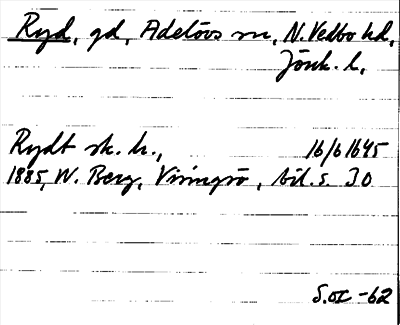 Ryd, gd, Adelövs sn, N. Vedbo hd,
Jönk. l,
Rydt sk. h., 16/6 1645
1885, W. Berg, Visingsö, bil. s. 30
S.OI -62